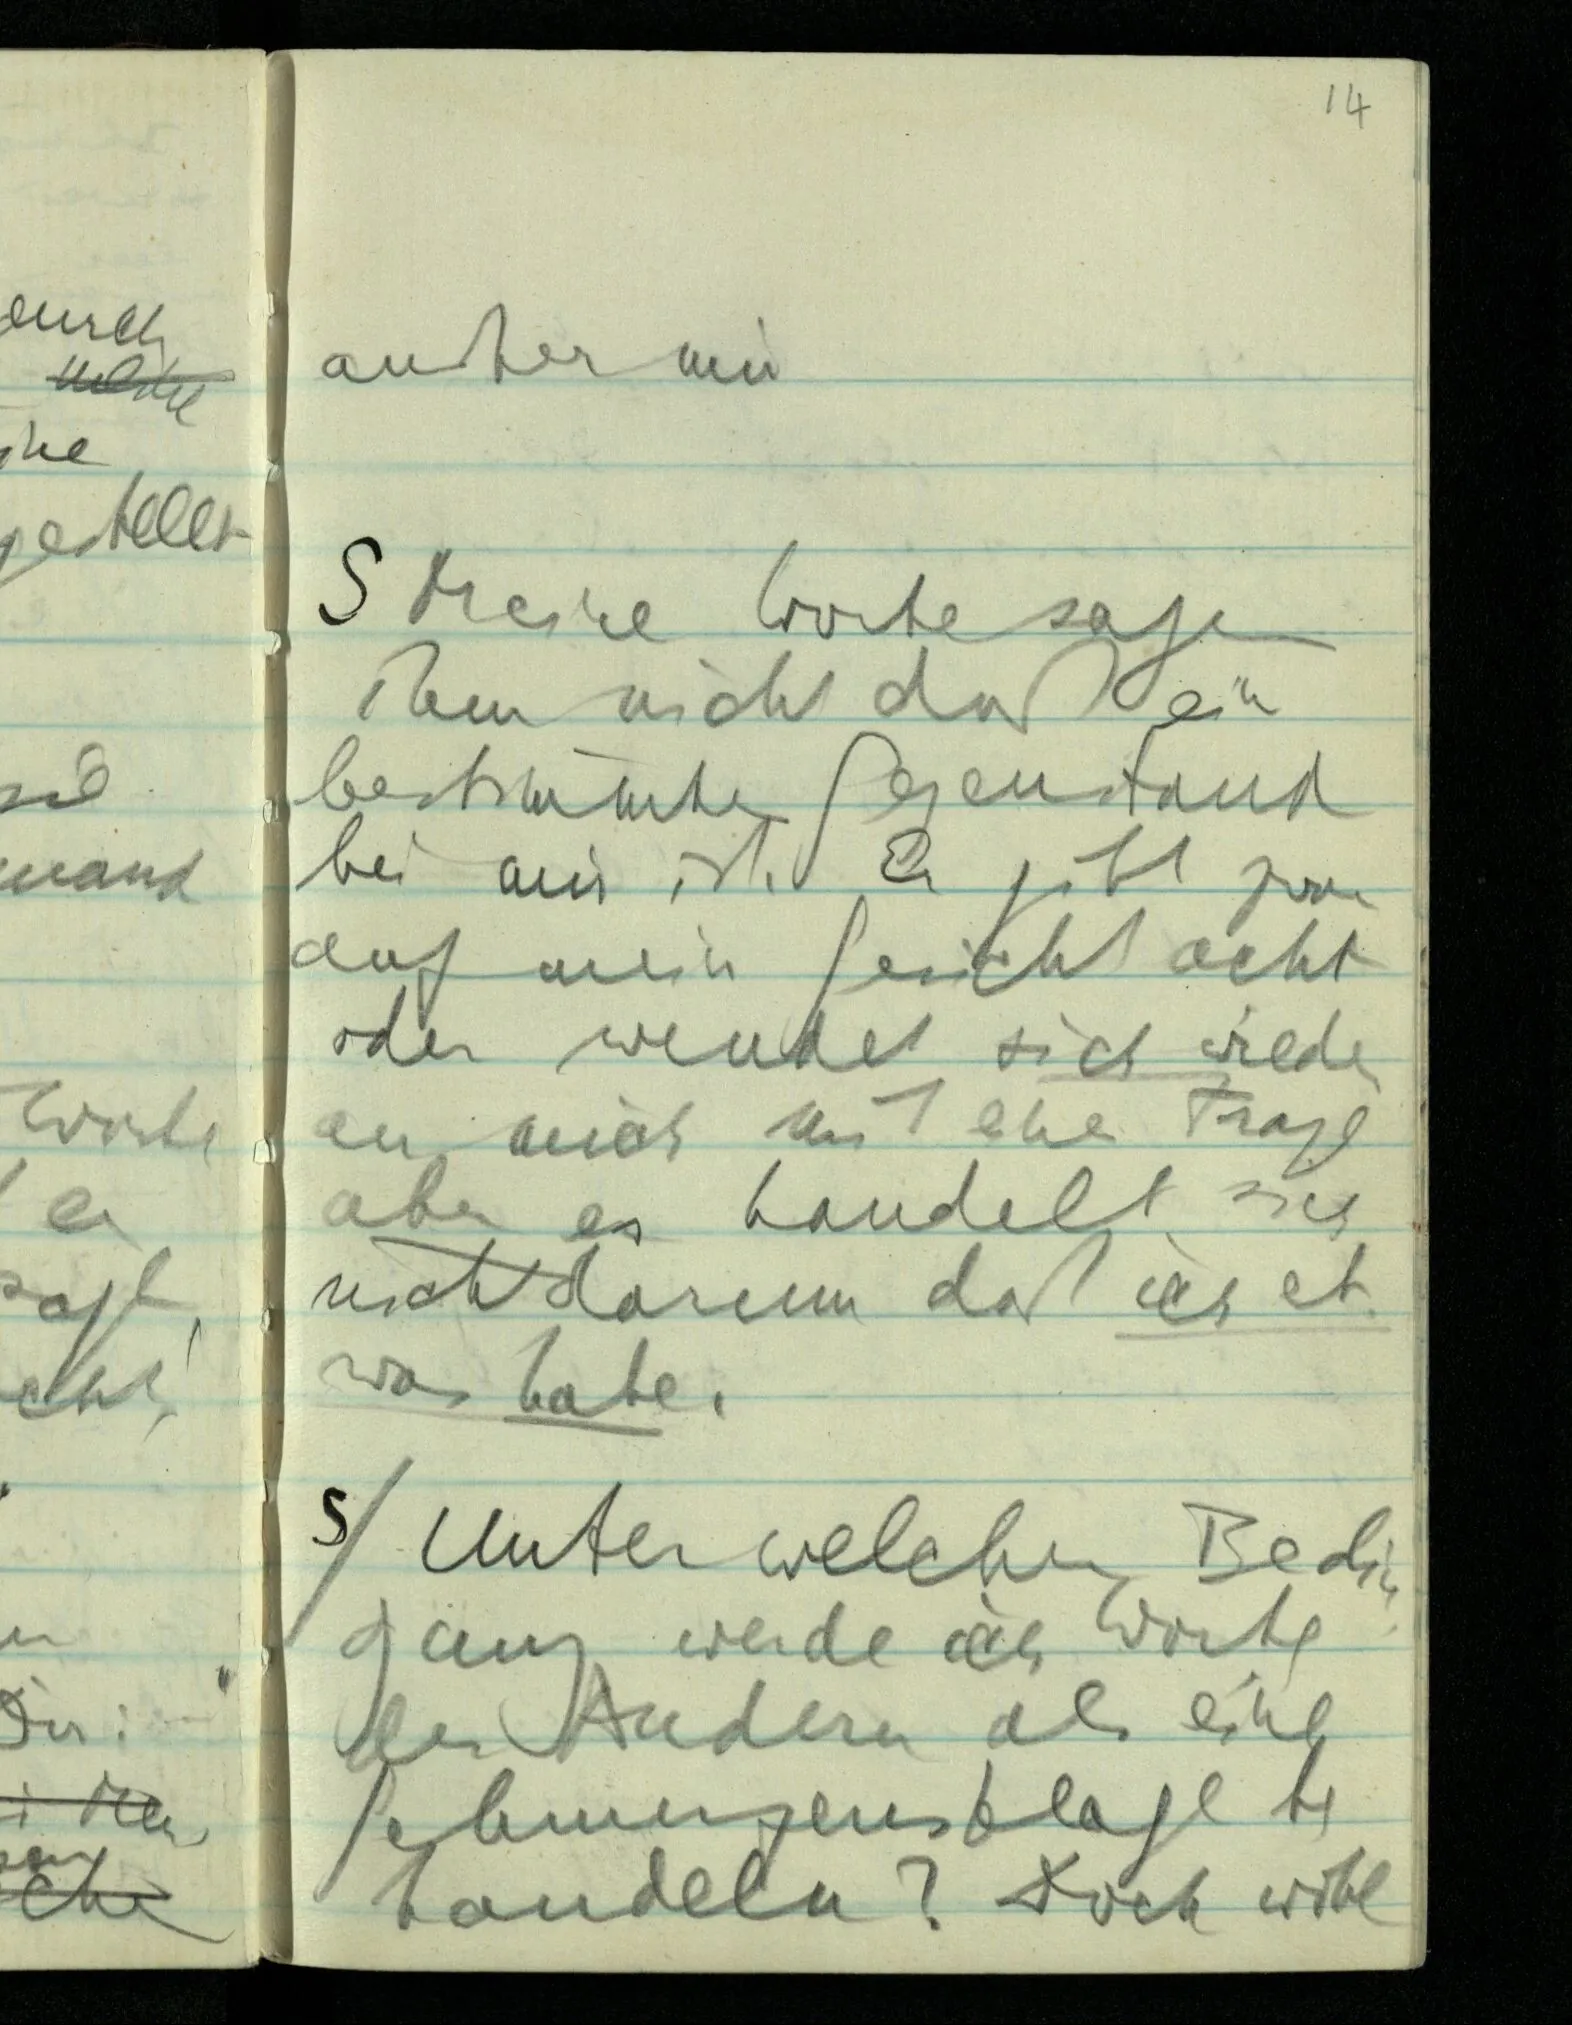 14
durch
ine
gestellt
sie
mand
Worte
er
sagt,
außer mir
S Meine Worte sagen
ihm nicht daß ein
bestimmter Gegenstand
bei mir ist. Er gibt zwar
auf mein Gesicht acht
oder wendet sich wieder
an mich mit einer Frage
aber es handelt sich
nicht darum daß ich et-
was habe.
S/ Unter welchen Bedin-
gung werde ich Worte
des Andern als eine
Schmerzensklage be
handeln? Doch wohl